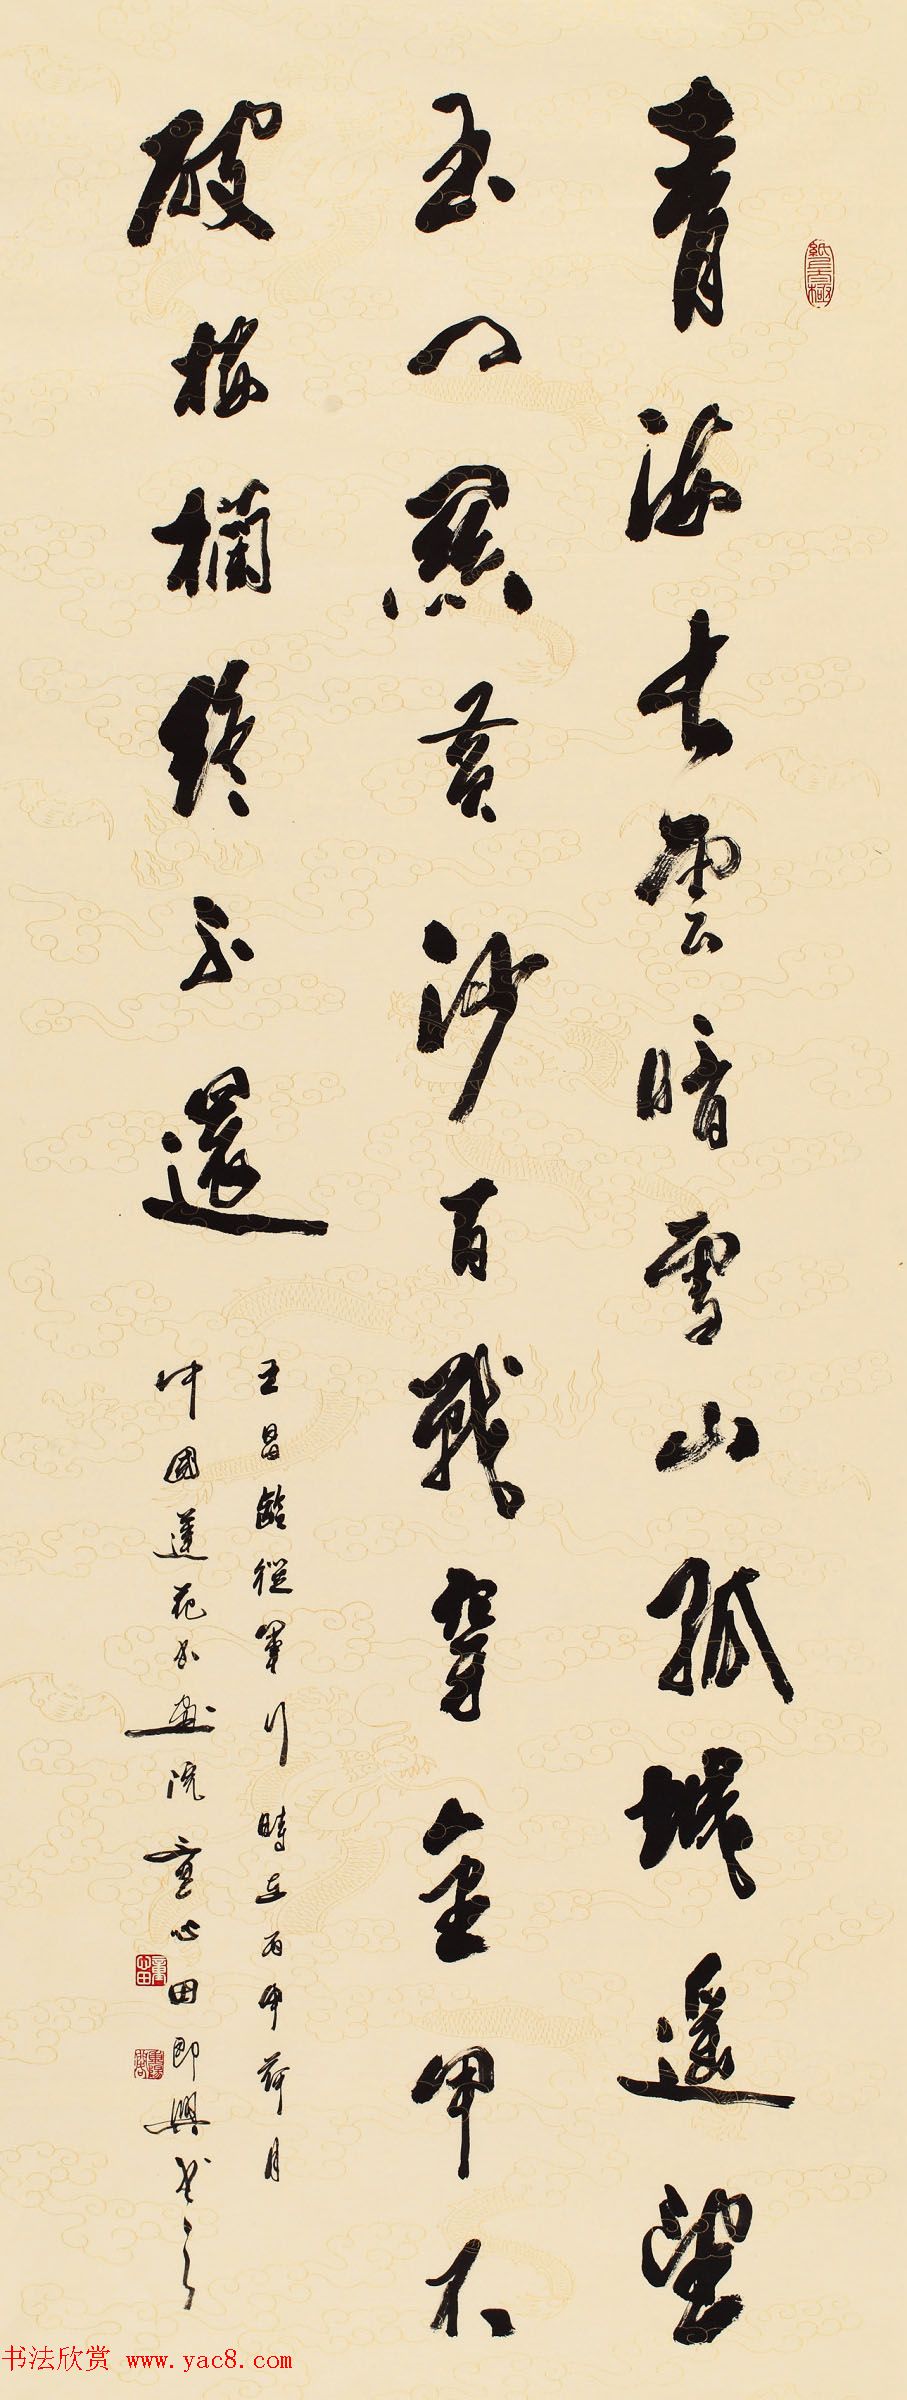 青海长雲暗雪山孤城遥望
玉门關黄沙百戰穿金甲不
破楼欄終不還
王昌齡從軍行時在丙申荷月
中國蓮花书画院童心田即興书之
童心田
书法欣赏 www.yac8.com